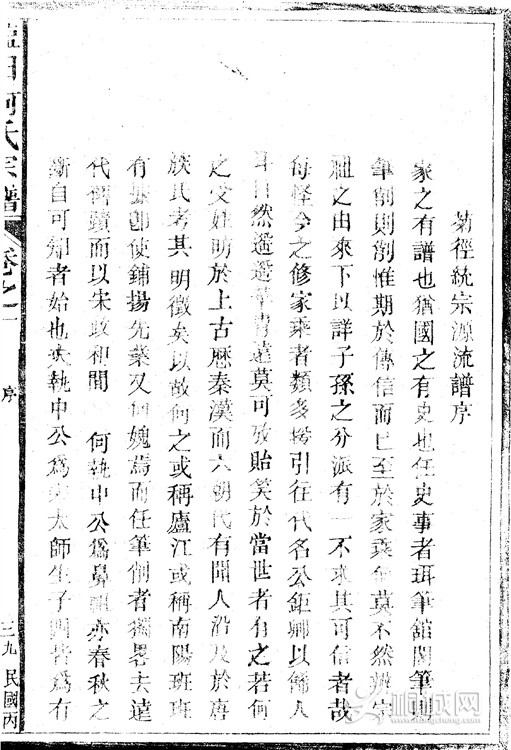 菊徑統宗源流譜序
家之有譜也猶國之有史也任史事者珥筆舘閣筆則
筆削則削惟期於傳信而已至於家乘何莫不然敘宗
祖之由來下以詳子孫之分派有一不求其可信者哉
每怪今之修家乘者類多援引往代名公鉅卿以飾人
耳目然遥遥華胄遠莫可攷貽笑於當世者有之若何
之受姓昉於上古歷秦漢而六朝代有聞人沿及於唐
族氏考其明徵矣以故何之或稱廬江或稱南陽班班
有據卽使鋪揚先業又何媿焉而任筆削者獨畧去遠
代稗蹟而以宋政和間 何執中公爲鼻祖亦春秋之
斷自可知者始也夫執中公爲太師生子四皆爲有
田何氏宗譜
卷之一
序
三九
民國丙